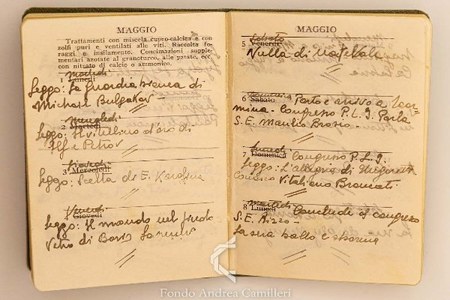 MAGGIO
Trattamenti con miscela cupro-calcica e con
zolfi puri e ventilati alle viti. Raccolta fo-
raggi e insilamento. Concimazioni supple-
mentari azotate al granoturco, alle patate, ecc.
con nitrato di calcio o ammonio.
martedì
1 Lunedì
Leggo: La guardia bianca di
Michail Bulgakov
mercoledì
2 Martedì
Leggo: Il vitellino d'oro di
Ilf e Petrov
giovedì
3 Mercoledì
Leggo: di E.
venerdì
4 Giovedì
Leggo: Il mondo nel
di Boris
MAGGIO
sabato
5 Venerdì
Nulla di notevole
6 Sabato
Parto e arrivo a
Congresso P.L.I. Parla
S.E. Manlio Brosio
7 Domenica
Congresso P.L.I.
Leggo: L'allegria di Ungaretti
Conosco Vitaliano Brancati
martedì
8 Lunedì
Conclude il congresso
S.E. Rizzo
La sera ballo e
Fondo Andrea Camilleri